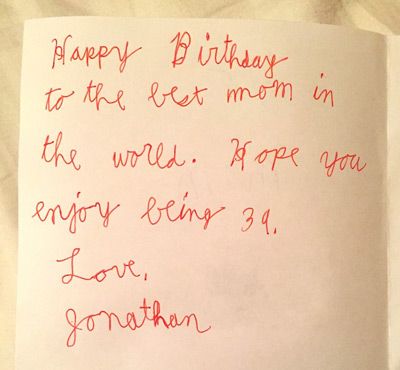 Happy Birthday
to the best mom in
the world. Hope you
enjoy being 39.
Love,
Jonathan